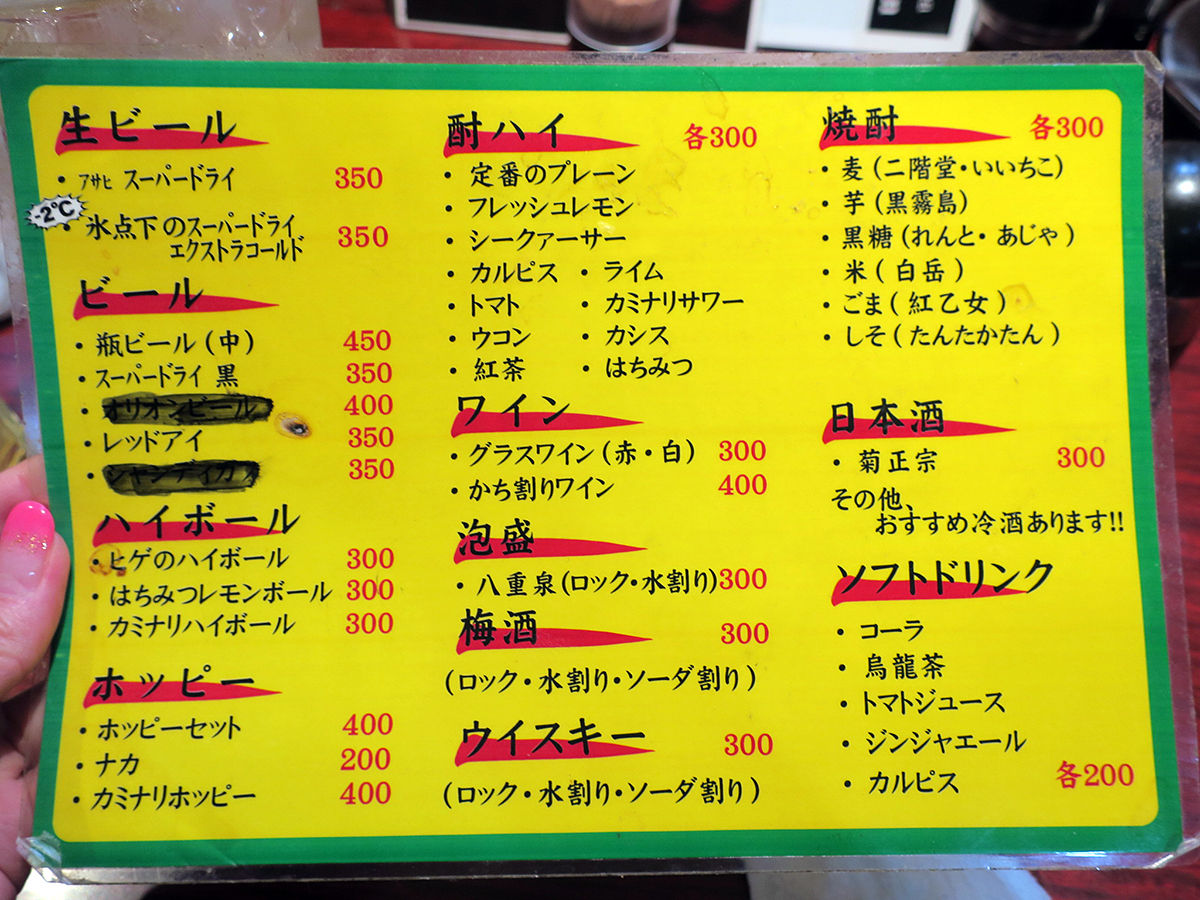 生ビール
・アサヒ スーパードライ 350
-2℃
・氷点下のスーパードライ
エクストラコールド 350
ビール
・瓶ビール(中) 450
・スーパードライ 黒 350
・オリオンビール 400
・レッドアイ 350
・シャンディガフ 350
ハイボール
・ヒゲのハイボール 300
・はちみつレモンボール 300
・カミナリハイボール 300
ホッピー
・ホッピーセット 400
・ナカ 200
・カミナリホッピー 400
酎ハイ 各300
・定番のプレーン
・フレッシュレモン
・シークァーサー
・カルピス ・ライム
・トマト ・カミナリサワー
・ウコン ・カシス
・紅茶 ・はちみつ
ワイン
・グラスワイン(赤・白) 300
・かち割りワイン 400
泡盛
・八重泉(ロック・水割り)300
梅酒 300
(ロック・水割り・ソーダ割り)
ウイスキー 300
(ロック・水割り・ソーダ割り)
焼酎 各300
・麦(二階堂・いいちこ)
・芋(黒霧島)
・黒糖(れんと・あじゃ)
・米(白岳)
・ごま(紅乙女)
・しそ(たんたかたん)
日本酒
・菊正宗 300
その他、
おすすめ冷酒あります!!
ソフトドリンク
・コーラ
・烏龍茶
・トマトジュース
・ジンジャエール
・カルピス 各200